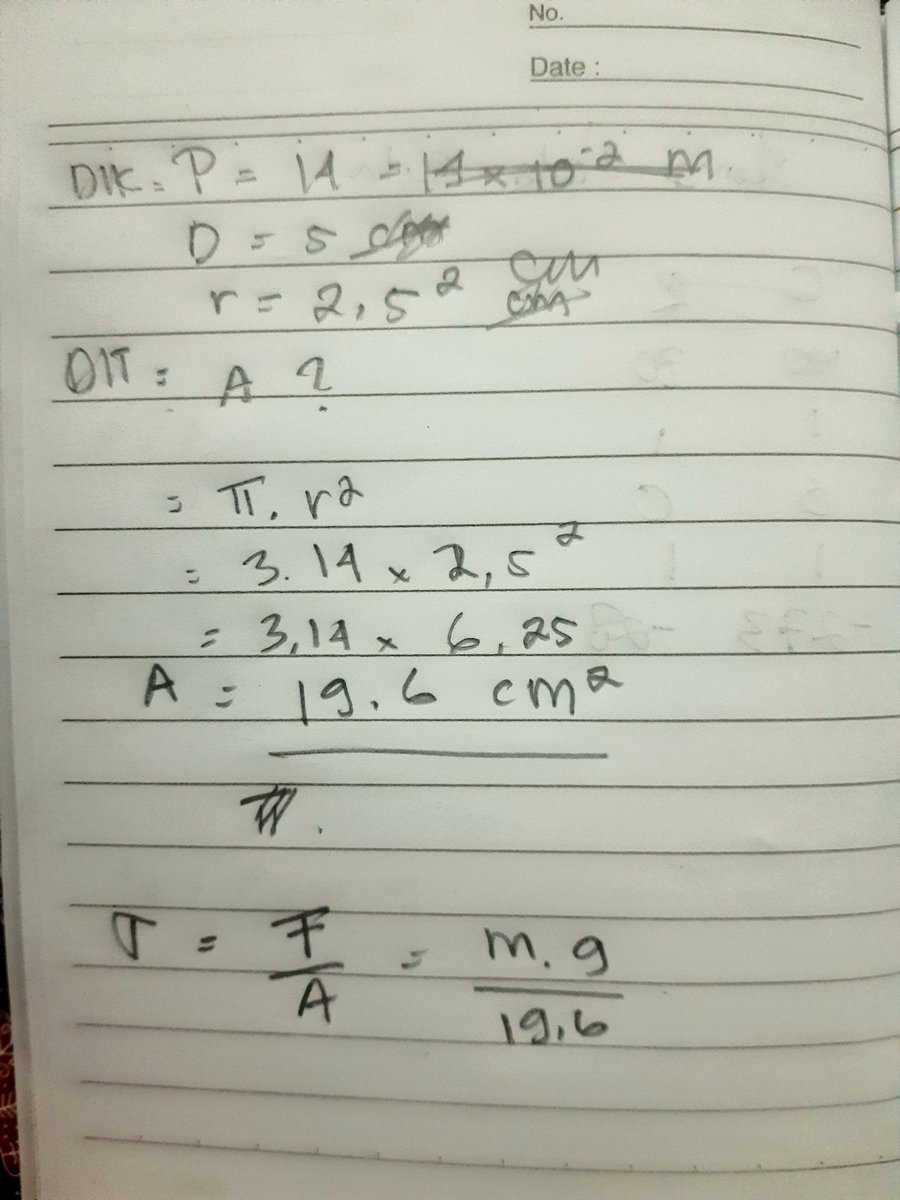 No.
Date :
DIK = P = 14 = 14 x 10⁻² m
D = 5 cm
r = 2,5² cm
DIT = A ?
= π. r²
= 3.14 x 2,5²
= 3,14 x 6,25
A = 19.6 cm²
σ = F/A = m.g/19,6